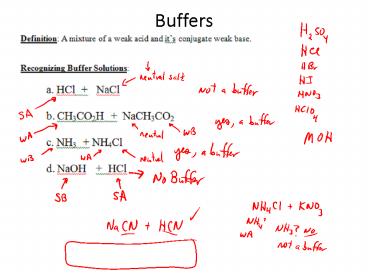 Buffers
Definition: A mixture of a weak acid and it's conjugate weak base.
Recognizing Buffer Solutions:
neutral salt
a. HCl + NaCl
not a buffer
SA
b. CH3CO2H + NaCH3CO2
yes, a buffer
WA
neutral
WB
c. NH3 + NH4Cl
yes, a buffer
WB
WA
neutral
d. NaOH + HCl
No Buffer
SB
SA
NaCN + HCN ✓
H2SO4
HCl
HBr
HI
HNO3
HClO4
MOH
NH4Cl + KNO3
NH4+
NH3? no
WA
not a buffer